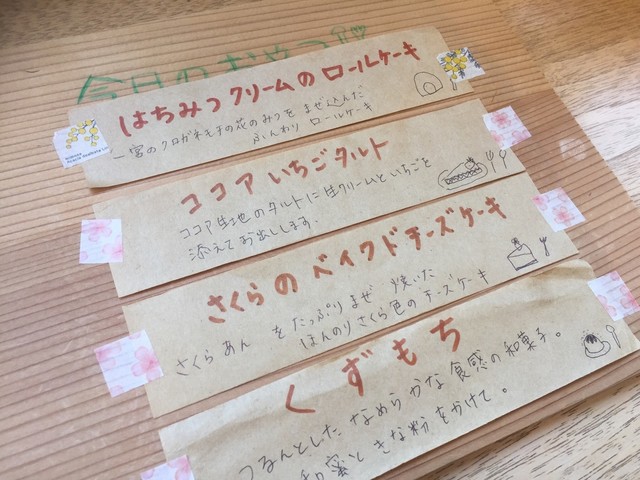 今日のおやつ
はちみつクリームのロールケーキ
一宮のクロガネモチの花のみつを まぜ込んだ
ふんわり ロールケーキ
ココア いちごタルト
ココア生地のタルトに生クリームといちごを
添えてお出しします。
さくらのベイクドチーズケーキ
さくらあん をたっぷりまぜ 焼いた
ほんのりさくら色の チーズケーキ
くずもち
つるんとした なめらかな 食感の和菓子。
蜜と きな粉をかけて。